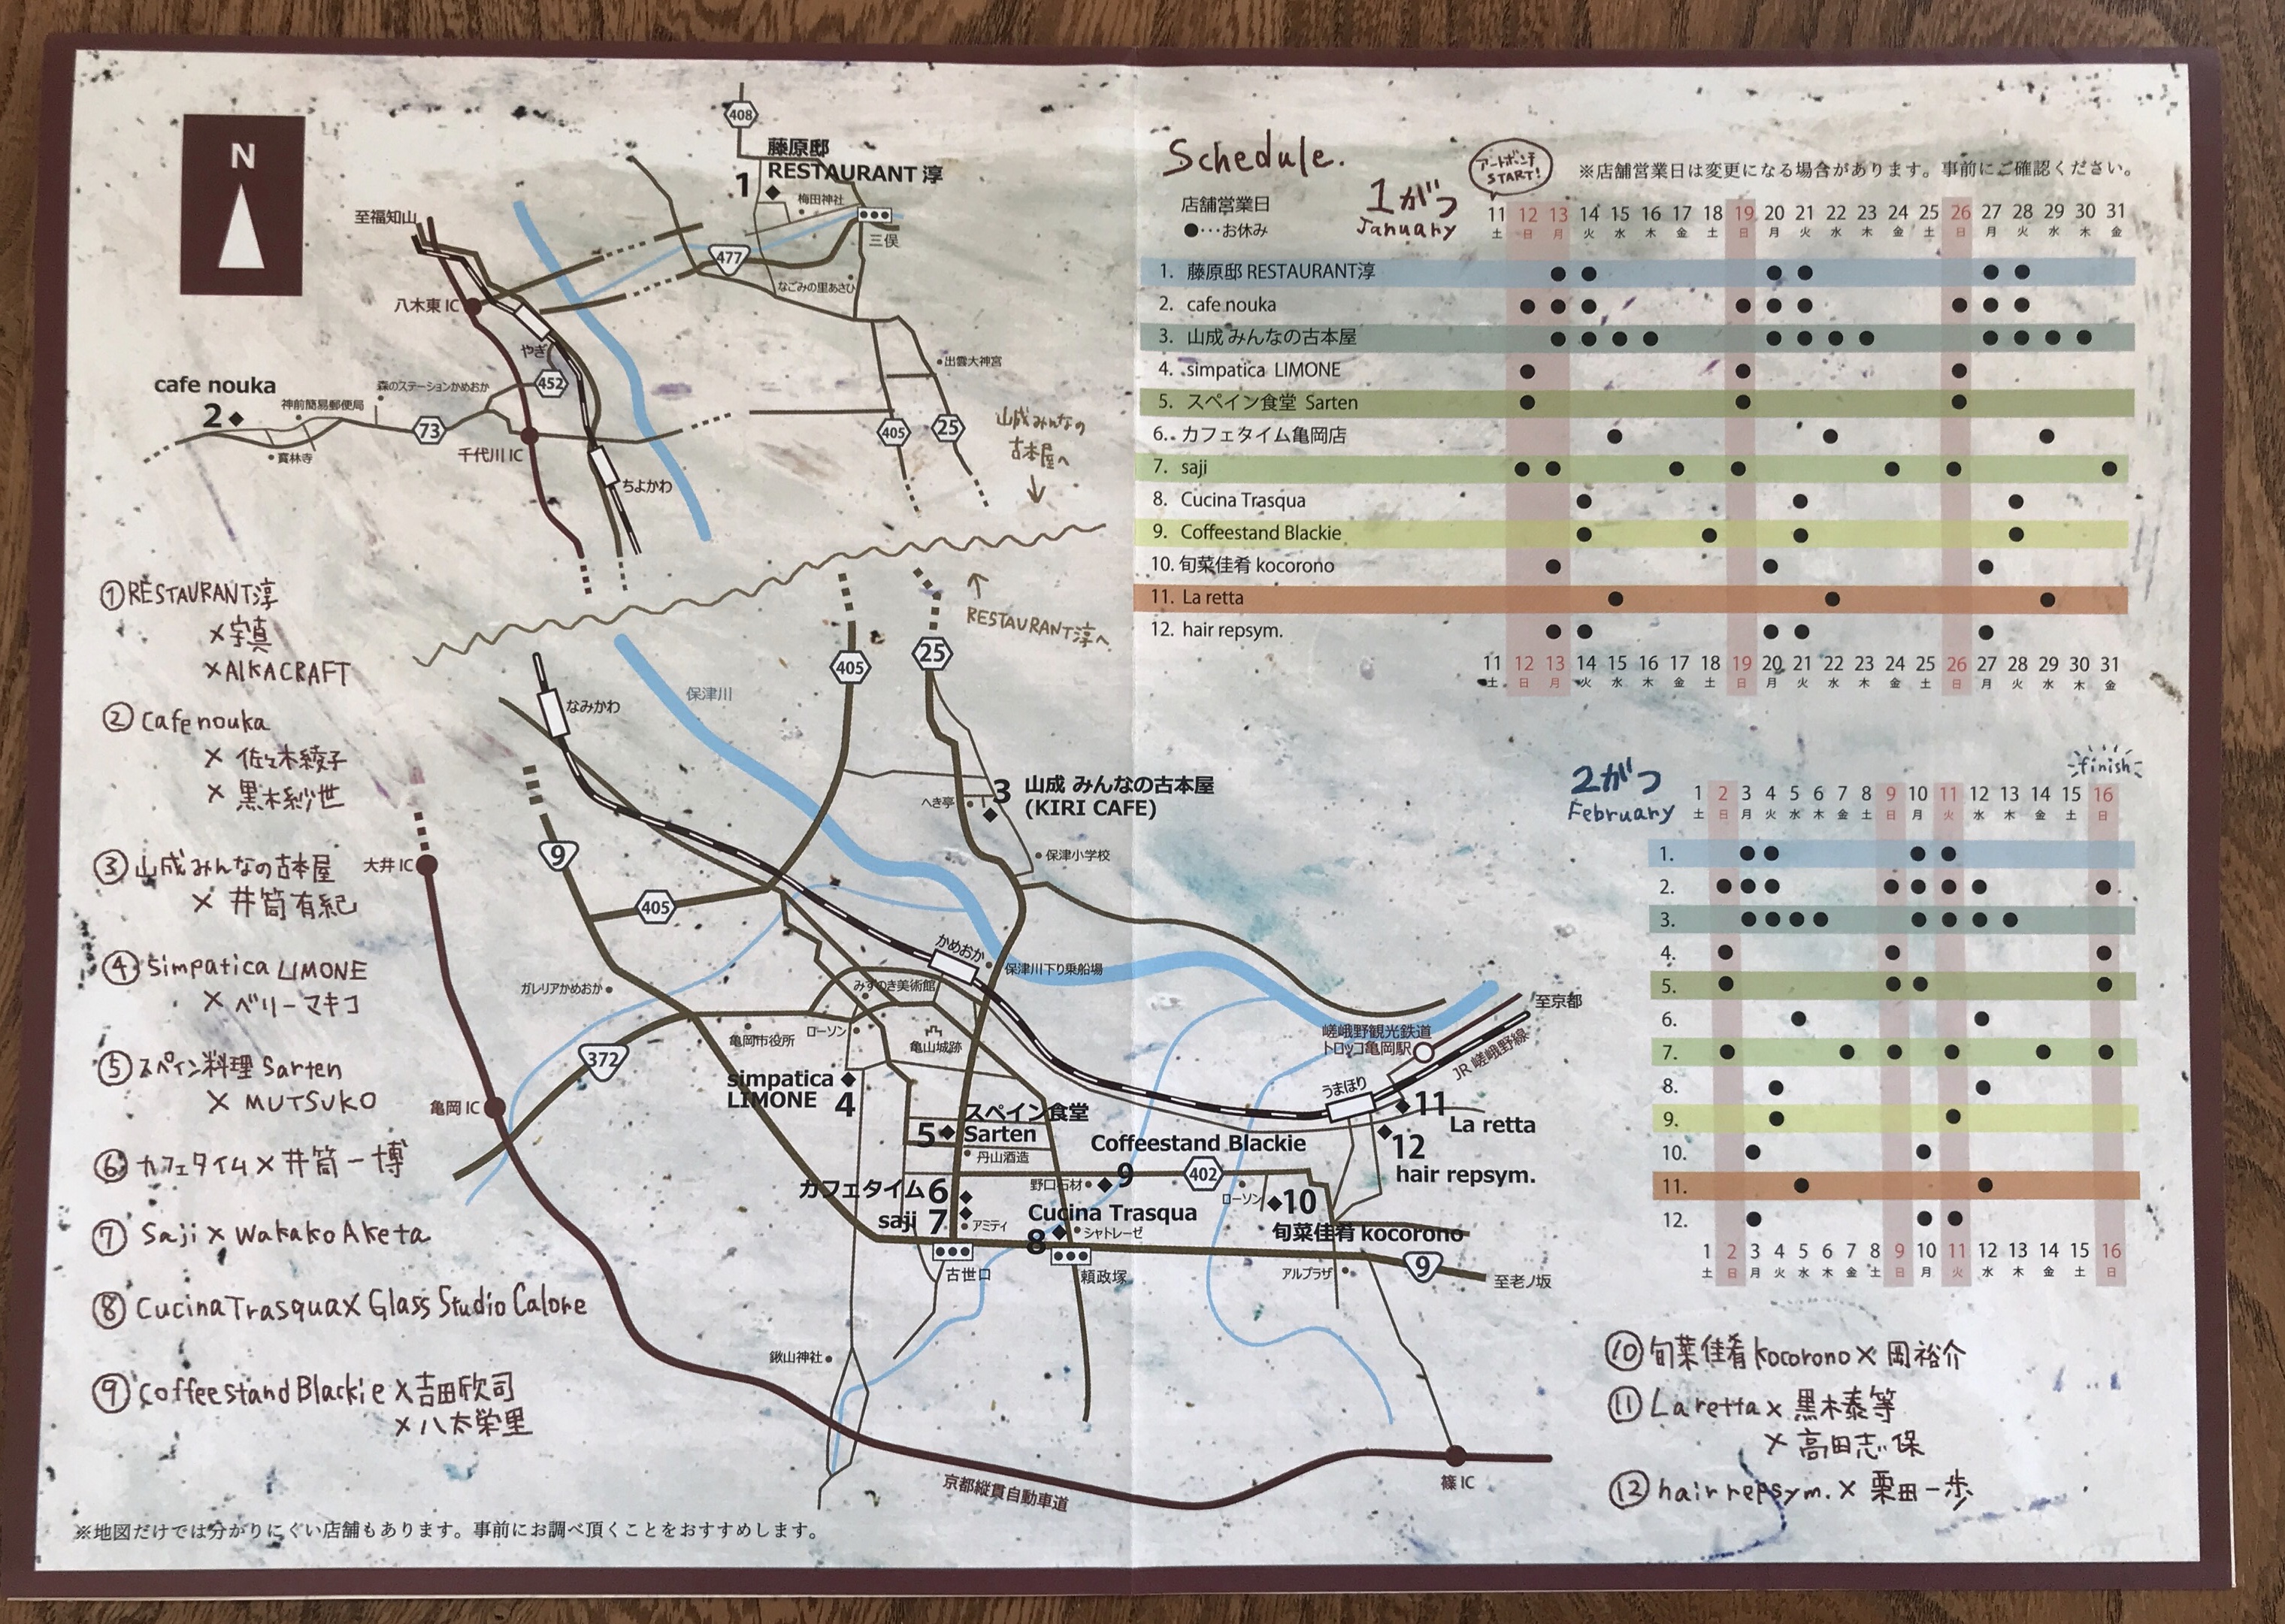 N
408
藤原邸
RESTAURANT 淳
1
梅田神社
三俣
至福知山
477
なごみの里あさひ
八木東 IC
やぎ
出雲大神宮
cafe nouka
2
神前簡易郵便局
森のステーションかめおか
452
73
寳林寺
千代川 IC
ちよかわ
405
25
山成みんなの
古本屋へ
RESTAURANT淳へ
①RESTAURANT淳
×宇真
×AIKACRAFT
② Cafe nouka
× 佐々木綾子
× 黒木紗世
③山成みんなの古本屋
× 井筒有紀
④ Simpatica LIMONE
× ベリーマキコ
⑤ スペイン料理 Sarten
× MUTSUKO
⑥ カフェタイム×井筒一博
⑦ Saji×Wakako Aketa
⑧ Cucina Trasqua× Glass Studio Calore
⑨ Coffee stand Blackie×吉田欣司
×八太栄里
405
25
なみかわ
保津川
3
山成 みんなの古本屋
(KIRI CAFE)
へき亭
保津小学校
9
大井 IC
405
かめおか
保津川下り乗船場
ガレリアかめおか
みずのき美術館
亀岡市役所
ローソン
亀山城跡
372
至京都
嵯峨野観光鉄道
トロッコ亀岡駅
JR 嵯峨野線
うまほり
simpatica
LIMONE
4
亀岡 IC
スペイン食堂
5
Sarten
丹山酒造
Coffeestand Blackie
11
La retta
12
hair repsym.
野口石材
9
402
ローソン
10
旬菜佳肴 kocorono
カフェタイム 6
saji 7
アミティ
Cucina Trasqua
8
シャトレーゼ
古世口
頼政塚
アルプラザ
9
至老ノ坂
鍬山神社
京都縦貫自動車道
篠 IC
※地図だけでは分かりにくい店舗もあります。事前にお調べ頂くことをおすすめします。
Schedule.
アートボンチ
START!
※店舗営業日は変更になる場合があります。事前にご確認ください。
店舗営業日
●…お休み
1がつ
January
11 12 13 14 15 16 17 18 19 20 21 22 23 24 25 26 27 28 29 30 31
土 日 月 火 水 木 金 土 日 月 火 水 木 金 土 日 月 火 水 木 金
1. 藤原邸 RESTAURANT淳
2. cafe nouka
3. 山成 みんなの古本屋
4. simpatica LIMONE
5. スペイン食堂 Sarten
6. カフェタイム亀岡店
7. saji
8. Cucina Trasqua
9. Coffeestand Blackie
10. 旬菜佳肴 kocorono
11. La retta
12. hair repsym.
11 12 13 14 15 16 17 18 19 20 21 22 23 24 25 26 27 28 29 30 31
土 日 月 火 水 木 金 土 日 月 火 水 木 金 土 日 月 火 水 木 金
2がつ
February
finish
1 2 3 4 5 6 7 8 9 10 11 12 13 14 15 16
土 日 月 火 水 木 金 土 日 月 火 水 木 金 土 日
1.
2.
3.
4.
5.
6.
7.
8.
9.
10.
11.
12.
1 2 3 4 5 6 7 8 9 10 11 12 13 14 15 16
土 日 月 火 水 木 金 土 日 月 火 水 木 金 土 日
⑩旬菜佳肴 kocorono× 岡裕介
⑪ La retta× 黒木泰等
× 高田志保
⑫ hair repsym.× 栗田一歩